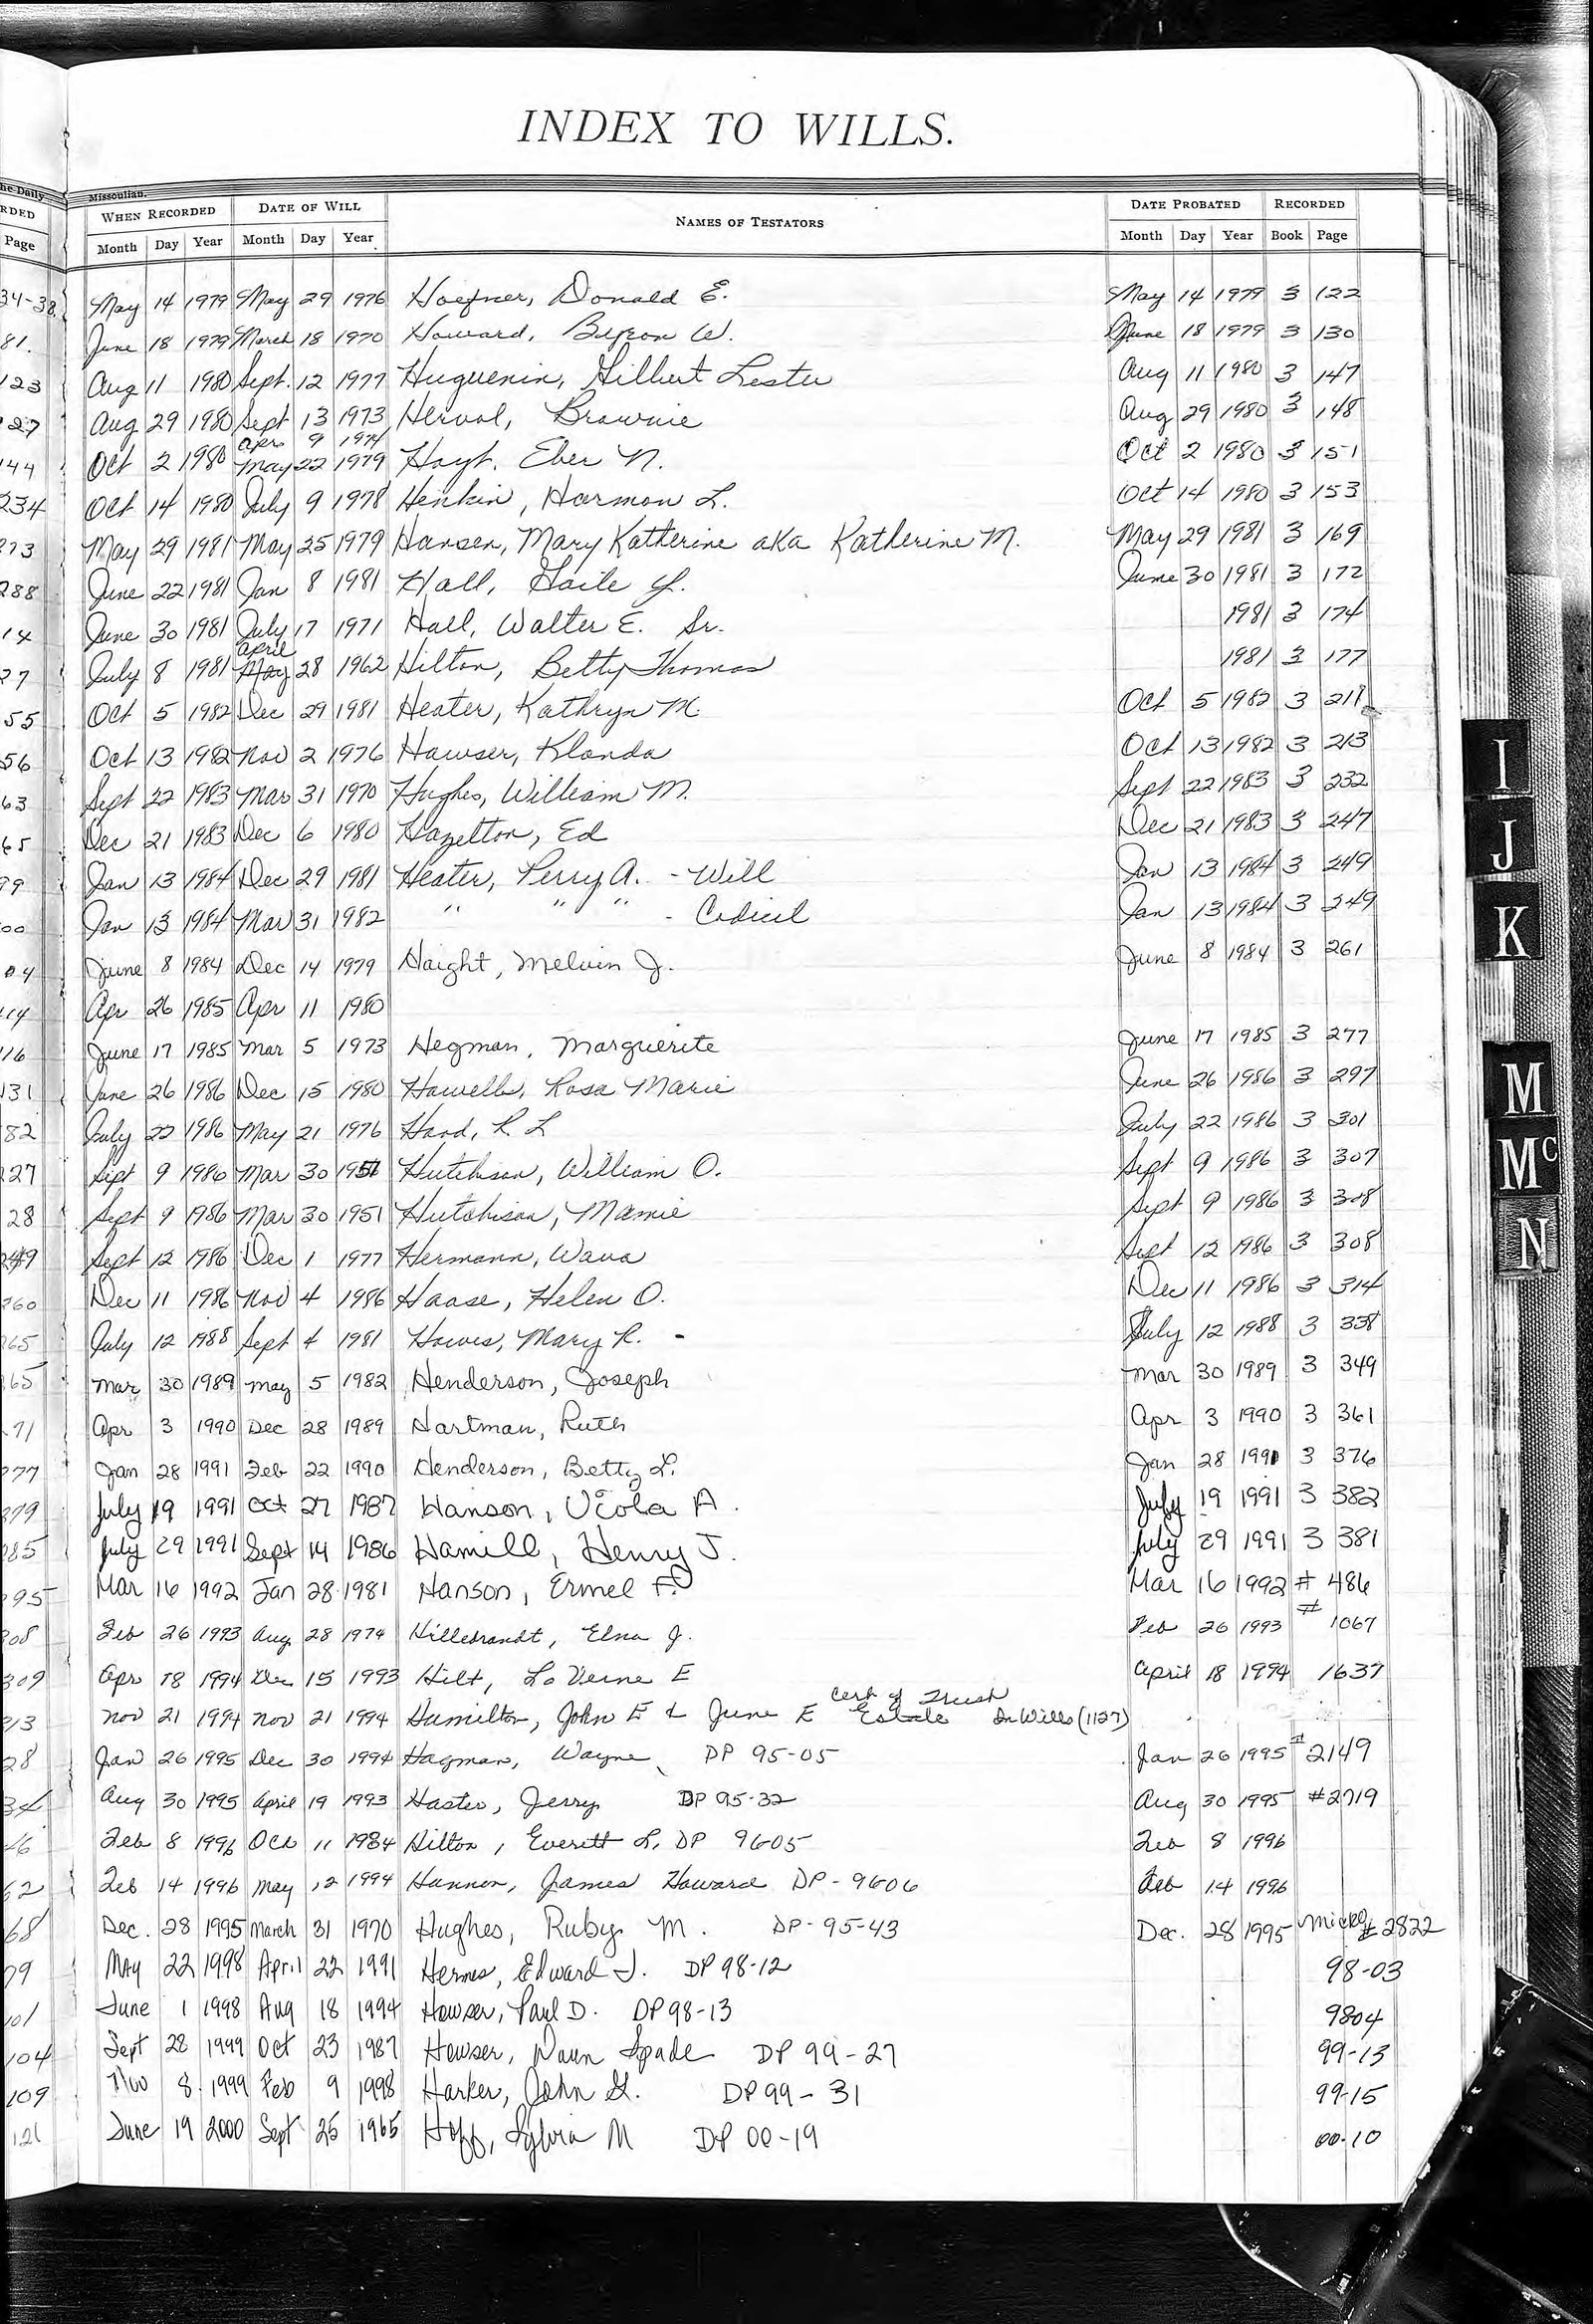 INDEX TO WILLS.
he Daily
Missoulian.
RDED WHEN RECORDED DATE OF WILL NAMES OF TESTATORS DATE PROBATED RECORDED
Page Month Day Year Month Day Year Month Day Year Book Page
34-38 May 14 1979 May 29 1976 Hoefner, Donald E. May 14 1979 3 122
81. June 18 1979 March 18 1970 Howard, Byron W. June 18 1979 3 130
123 Aug 11 1980 Sept. 12 1977 Huguenin, Gilbert Lester Aug 11 1980 3 147
27 Aug 29 1980 Sept 13 1973 Herval, Brownie Aug 29 1980 3 148
Apr 9 1974
44 Oct 2 1980 May 22 1979 Hoyt, Eber N. Oct 2 1980 3 151
234 Oct 14 1980 July 9 1978 Henkin, Harmon L. Oct 14 1980 3 153
273 May 29 1981 May 25 1979 Hansen, Mary Katherine aka Katherine M. May 29 1981 3 169
288 June 22 1981 Jan 8 1981 Hall, Gaile Y. June 30 1981 3 172
14 June 30 1981 July 17 1971 Hall, Walter E. Sr. 1981 3 174
April
27 July 8 1981 May 28 1962 Hilton, Betty Thomas 1981 3 177
55 Oct 5 1982 Dec 29 1981 Heater, Kathryn M. Oct 5 1982 3 211
56 Oct 13 1982 Nov 2 1976 Hawser, Klonda Oct 13 1982 3 213
63 Sept 22 1983 Mar 31 1970 Hughes, William M. Sept 22 1983 3 232
65 Dec 21 1983 Dec 6 1980 Hazelton, Ed Dec 21 1983 3 247
99 Jan 13 1984 Dec 29 1981 Heater, Perry A. - Will Jan 13 1984 3 249
00 Jan 13 1984 Mar 31 1982 " " " - Codicil Jan 13 1984 3 249
04 June 8 1984 Dec 14 1979 Haight, Melvin J. June 8 1984 3 261
14 Apr 26 1985 Apr 11 1980
116 June 17 1985 Mar 5 1973 Hegman, Marguerite June 17 1985 3 277
131 June 26 1986 Dec 15 1980 Howells, Rosa Marie June 26 1986 3 297
82 July 22 1986 May 21 1976 Hood, R L July 22 1986 3 301
227 Sept 9 1986 Mar 30 1951 Hutchison, William O. Sept 9 1986 3 307
28 Sept 9 1986 Mar 30 1951 Hutchison, Mamie Sept 9 1986 3 308
249 Sept 12 1986 Dec 1 1977 Hermann, Wava Sept 12 1986 3 308
260 Dec 11 1986 Nov 4 1986 Haase, Helen O. Dec 11 1986 3 314
265 July 12 1988 Sept 4 1981 Howes, Mary R. - July 12 1988 3 338
65 Mar 30 1989 May 5 1982 Henderson, Joseph Mar 30 1989 3 349
71 Apr 3 1990 Dec 28 1989 Hartman, Ruth Apr 3 1990 3 361
277 Jan 28 1991 Feb 22 1990 Henderson, Betty L. Jan 28 1991 3 376
279 July 19 1991 Oct 27 1987 Hanson, Viola A. July 19 1991 3 382
285 July 29 1991 Sept 14 1986 Hamill, Henry J. July 29 1991 3 381
295 Mar 16 1992 Jan 28 1981 Hanson, Ermel F. Mar 16 1992 # 486
308 Feb 26 1993 Aug. 28 1974 Hillebrandt, Elna J. Feb 26 1993 # 1067
309 Apr 18 1994 Dec 15 1993 Hilt, La Verne E April 18 1994 1637
Cert of Trust
313 Nov 21 1994 Nov 21 1994 Hamilton, John E & June E Estate In Wills (1127)
28 Jan 26 1995 Dec 30 1994 Hagman, Wayne DP 95-05 Jan 26 1995 # 2149
34 Aug 30 1995 April 19 1993 Haster, Jerry DP 95-32 Aug 30 1995 #2719
46 Feb 8 1996 Oct 11 1984 Hilton, Everett L. DP 96-05 Feb 8 1996
62 Feb 14 1996 May 12 1994 Hannon, James Howard DP-9606 Feb 14 1996
68 Dec. 28 1995 March 31 1970 Hughes, Ruby M. DP-95-43 Dec. 28 1995 Micro # 2822
79 May 22 1998 April 22 1991 Hermes, Edward J. DP 98-12 98-03
101 June 1 1998 Aug 18 1994 Howser, Paul D. DP 98-13 9804
104 Sept 28 1999 Oct 23 1987 Howser, Dawn Spade DP 99-27 99-13
109 Nov 8 1999 Feb 9 1998 Harker, John G. DP 99-31 99-15
121 June 19 2000 Sept 25 1965 Hoff, Sylvia M DP 00-19 00-10
I
J
K
M
Mc
N